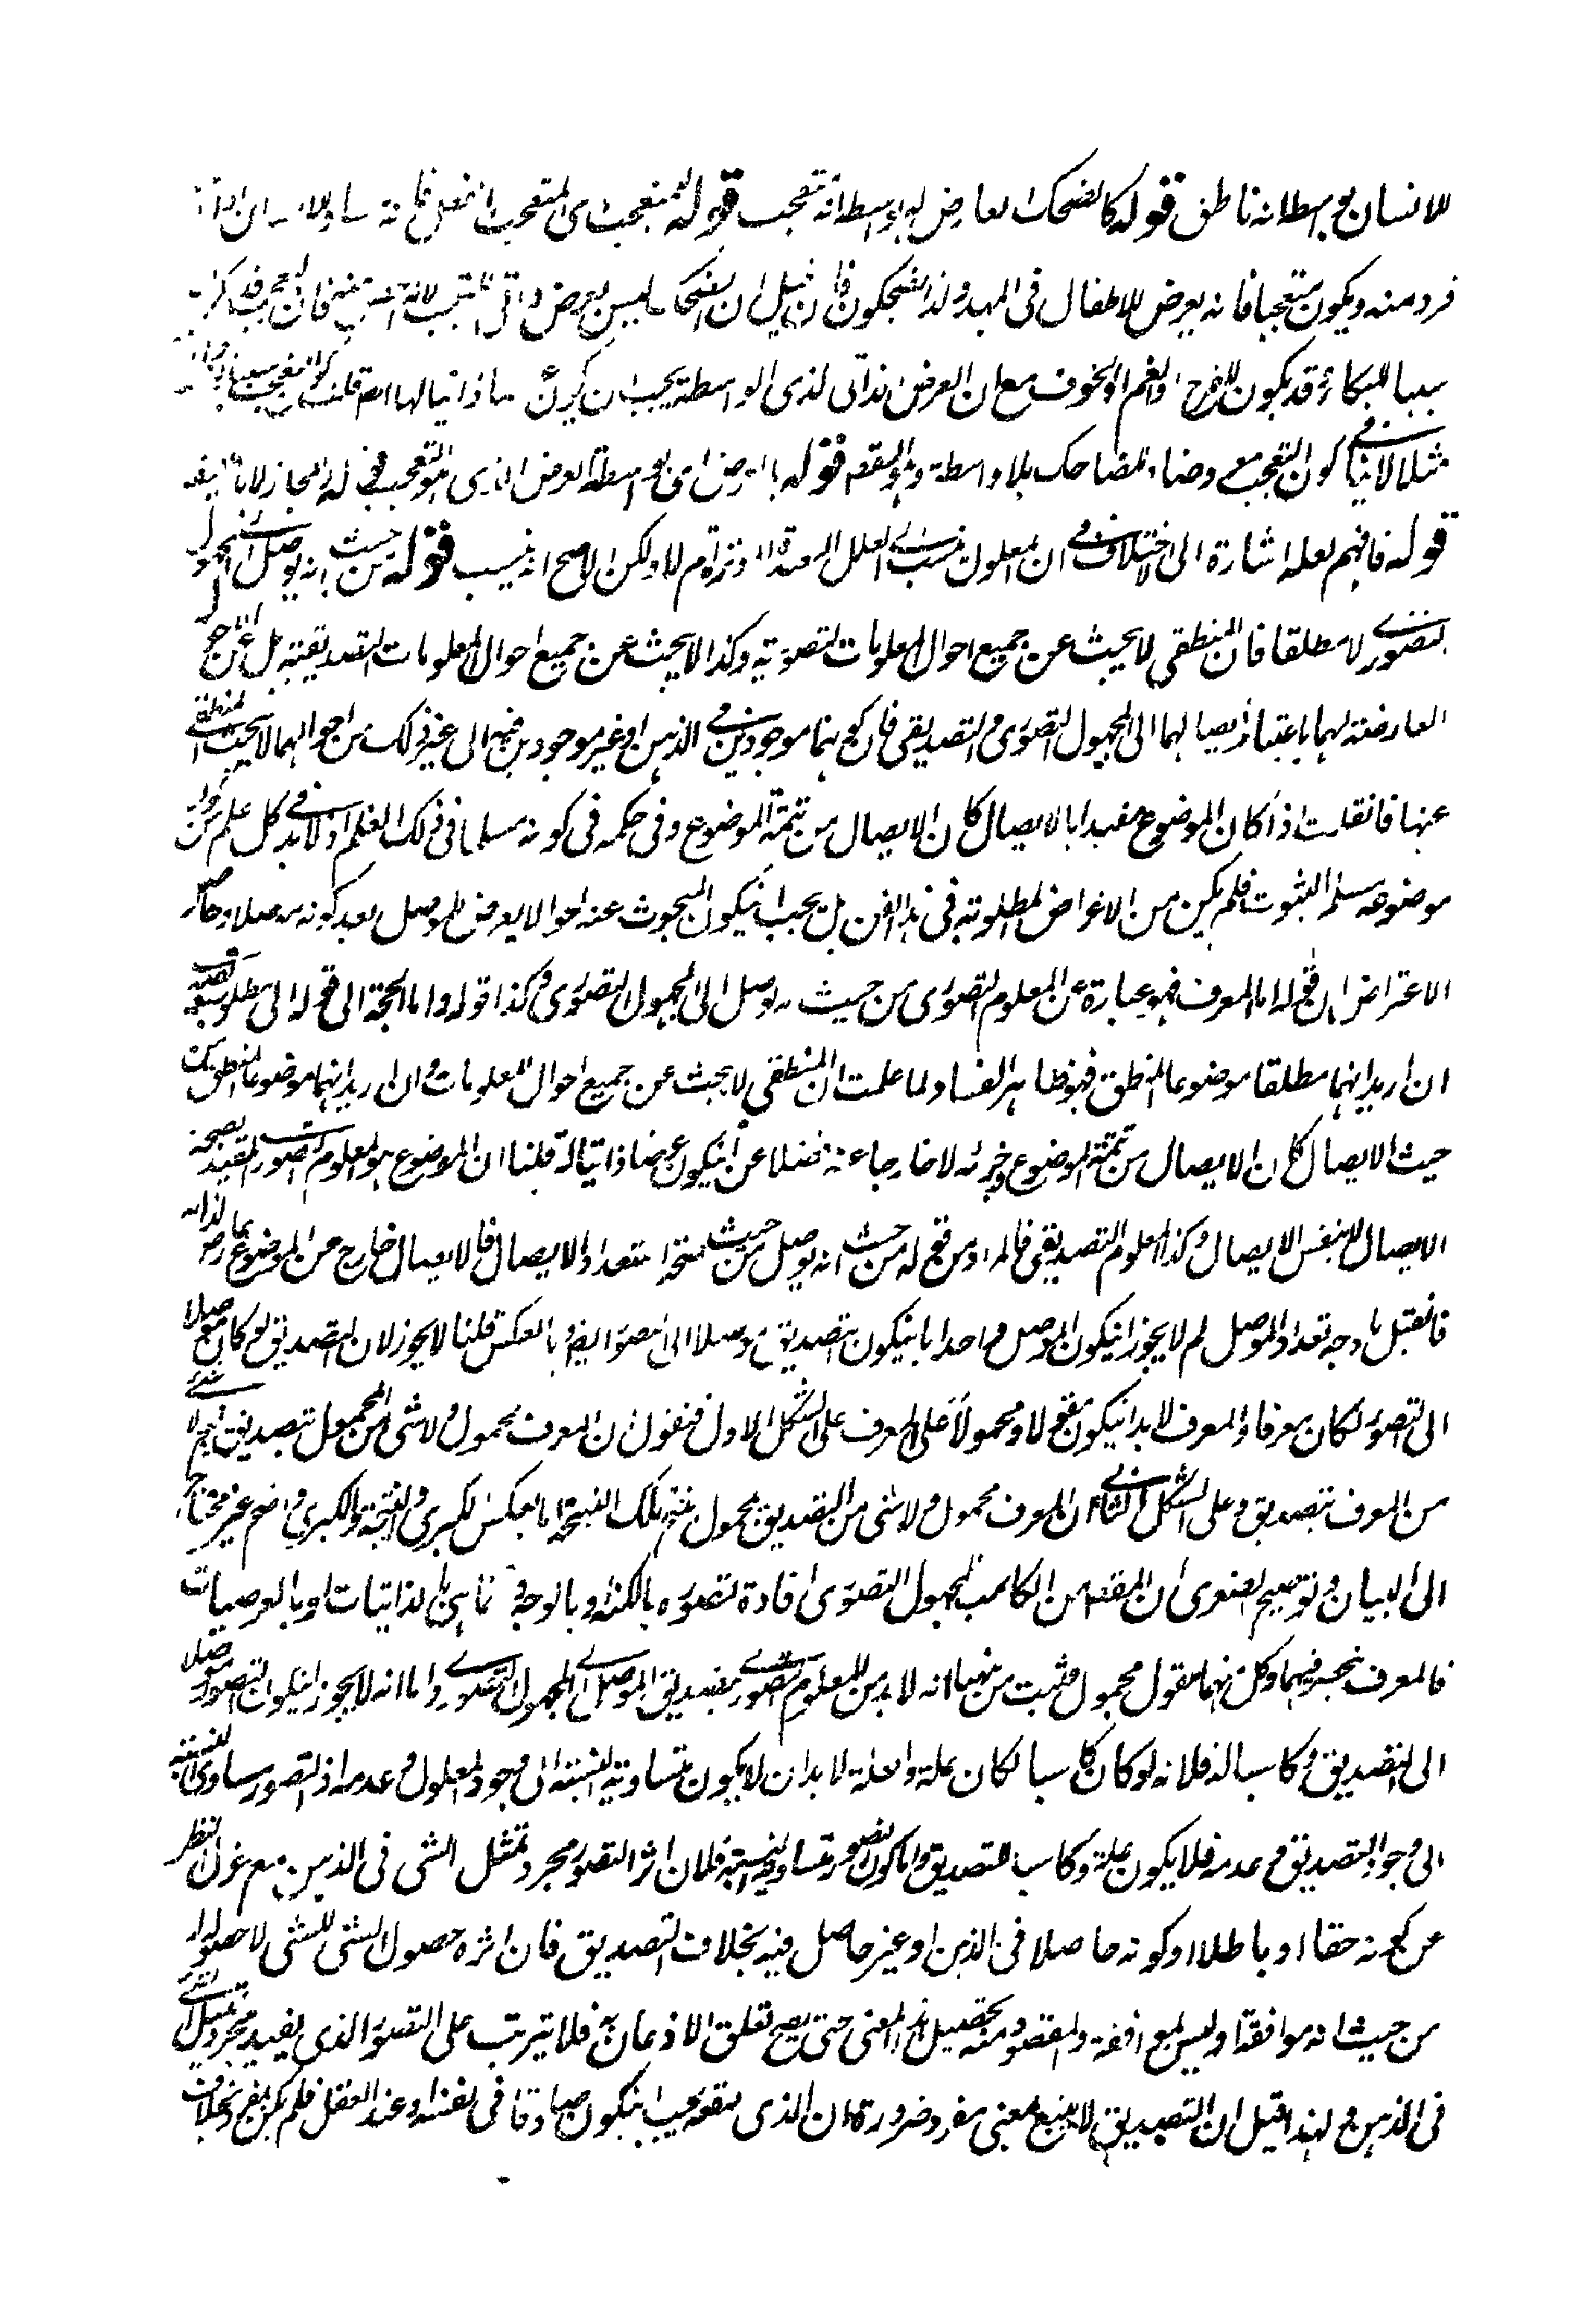 للانسان بواسطة انه ناطق قوله كالضحك العارض له بواسطة انه متعجب قوله متعجب اى المتعجب انفعل
فرد منه ويكون متعجبا فانه يعرض للاطفال فى المهد ولذا يضحكون فان قيل ان الضحك ليس بعرض ذاتى للمتعجب لانه فان التعجب قد يكون
سببا للبكاء وقد يكون للفرح والغم او الخوف مع ان العرض الذاتى لذى الواسطة يجب ان يكون ذاتيا لها قلنا كون التعجب سببا
مثلا لا ينافى كون التعجب معروضا للضاحك بلا واسطة وهو المقصود قوله بالعرض اى بواسطة العرض الذى هو التعجب
قوله فافهم لعله اشارة الى الاختلاف فى ان المعلول ينسب الى العلل البعيدة ام لا ولكن الاصح انه ينسب قوله من حيث انه يوصل الى المجهول
تصورى لا مطلقا فان المنطقى لا يبحث عن جميع احوال المعلومات التصورية وكذا لا يبحث عن جميع احوال المعلومات التصديقية بل عن
العارضة لهما باعتبار ايصالهما الى المجهول التصورى والتصديقى فان كونهما موجودين فى الذهن او غير موجودين فيه الى غير ذلك من احوالهما لا يبحث المنطقى
عنها فان قلت اذا كان الموضوع مقيدا بالايصال كان الايصال من تتمة الموضوع وفى حكمه فى كونه مسلما فى ذلك العلم اذ لا بد فى كل علم من كون
موضوعه مسلم الثبوت فلم يكن من الاعراض المطلوبة فى هذا الفن بل يجب ان يكون المبحوث عنه احوالا يعرض للموصل بعد كونه موصلا وحاصل
الاعتراض ان قوله اما المعرف فهو عبارة عن المعلوم التصورى من حيث يوصل الى المجهول التصورى وكذا قوله واما الحجة الى قوله الى مطلوب تصديقى
ان اريد انهما مطلقا موضوعا المنطق فهو ظاهر الفساد لما علمت ان المنطقى لا يبحث عن جميع احوال المعلومات وان اريد انهما موضوعا المنطق من
حيث الايصال كان الايصال من تتمة الموضوع وجزئه لا خارجا عنه فضلا عن ان يكون عرضا ذاتيا له قلنا ان الموضوع هو المعلوم التصورى المقيد بصحة
الايصال لا بنفس الايصال وكذا المعلوم التصديقى فالمراد من قوله من حيث انه يوصل من حيث صحة استعداد الايصال فالايصال خارج عن الموضوع عارض لذاته
فان قيل ما وجه تعدد الموصل لم لا يجوز ان يكون الموصل واحدا بان يكون التصديق موصلا الى التصور ايضا او بالعكس قلنا لا يجوز لان التصديق لو كان موصلا
الى التصور لكان معرفا والمعرف لا بد ان يكون مقولا ومحمولا على المعرف على الشكل الاول فنقول ان المعرف محمول ولا شئ من المحمول بتصديق ينتج لا شئ
من المعرف بتصديق وعلى الشكل الثانى ان المعرف محمول ولا شئ من التصديق بمحمول ينتج تلك النتيجة اما بعكس الكبرى او النتيجة والكبرى واضح غير محتاج
الى البيان وتوضيح الصغرى ان المقصود من الكاسب المجهول التصورى افادة تصوره بالكنه او بالوجه وتاتى بالذاتيات او بالعرضيات
فالمعرف منحصر فيهما وكل منهما مقول محمول فثبت من هنا انه لا بد من المعلوم التصورى الموصل الى المجهول التصورى واما انه لا يجوز ان يكون التصور موصلا
الى التصديق وكاسبا له فلانه لو كان كاسبا لكان علة والعلة لا بد ان لا يكون متساوية النسبة الى وجود المعلول وعدمه اذ التصور مساوى النسبة
الى وجود التصديق وعدمه فلا يكون علة وكاسبا للتصديق واما كون التصور متساوية النسبة فلان اثر التصور مجرد تمثل الشئ فى الذهن مع عزل النظر
عن كونه حقا او باطلا او كونه حاصلا فى الذهن او غير حاصل فيه بخلاف التصديق فان اثره حصول الشئ للشئ لا حصوله
من حيث انه موافقة او ليس بموافقة والمقصود منه تحصيل هذا المعنى حتى يصح تعلق الاذعان به فلا يترتب على التصور الذى يفيد مجرد تمثيل الشئ
فى الذهن ولهذا قيل ان التصديق لا ينبع بمعنى مفرد ضرورة ان الذى نوقعه يجب ان يكون صادقا فى نفسه او عند العقل فلم يكن المفرد بخلاف